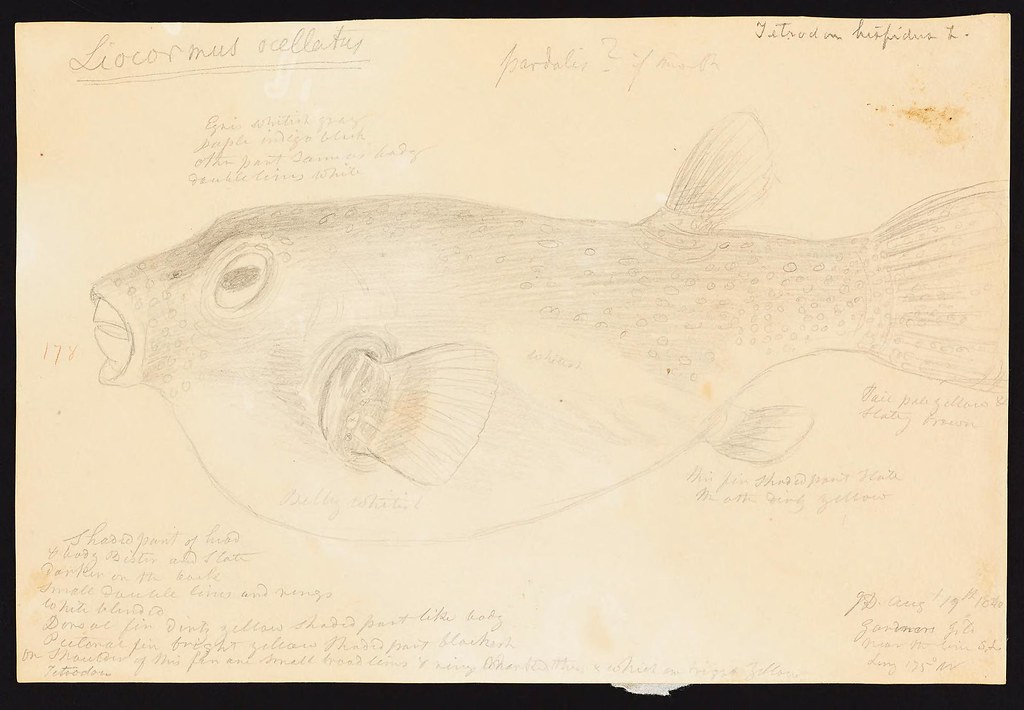 Liocormus ocellatus
Tetrodon hispidus L.
pardalis ? if
whitish gray
purple indigo black
other part same as body
double lines white
178
whitish
Tail pale yellow &
Slaty brown
This fin shaded part Slate
the other dirty yellow
Belly whitish
Shaded part of head
& body Bister and Slate
Darker on the back
Small double lines and rings
White blended
Dorsal fin dirty yellow shaded part like body
Pectoral fin bright yellow shaded part blackish
on Shoulder of this fin are small broad lines & rings yellow
Tetrodon
JD. Aug 19th 1840
Gardners Isle
Near the Line